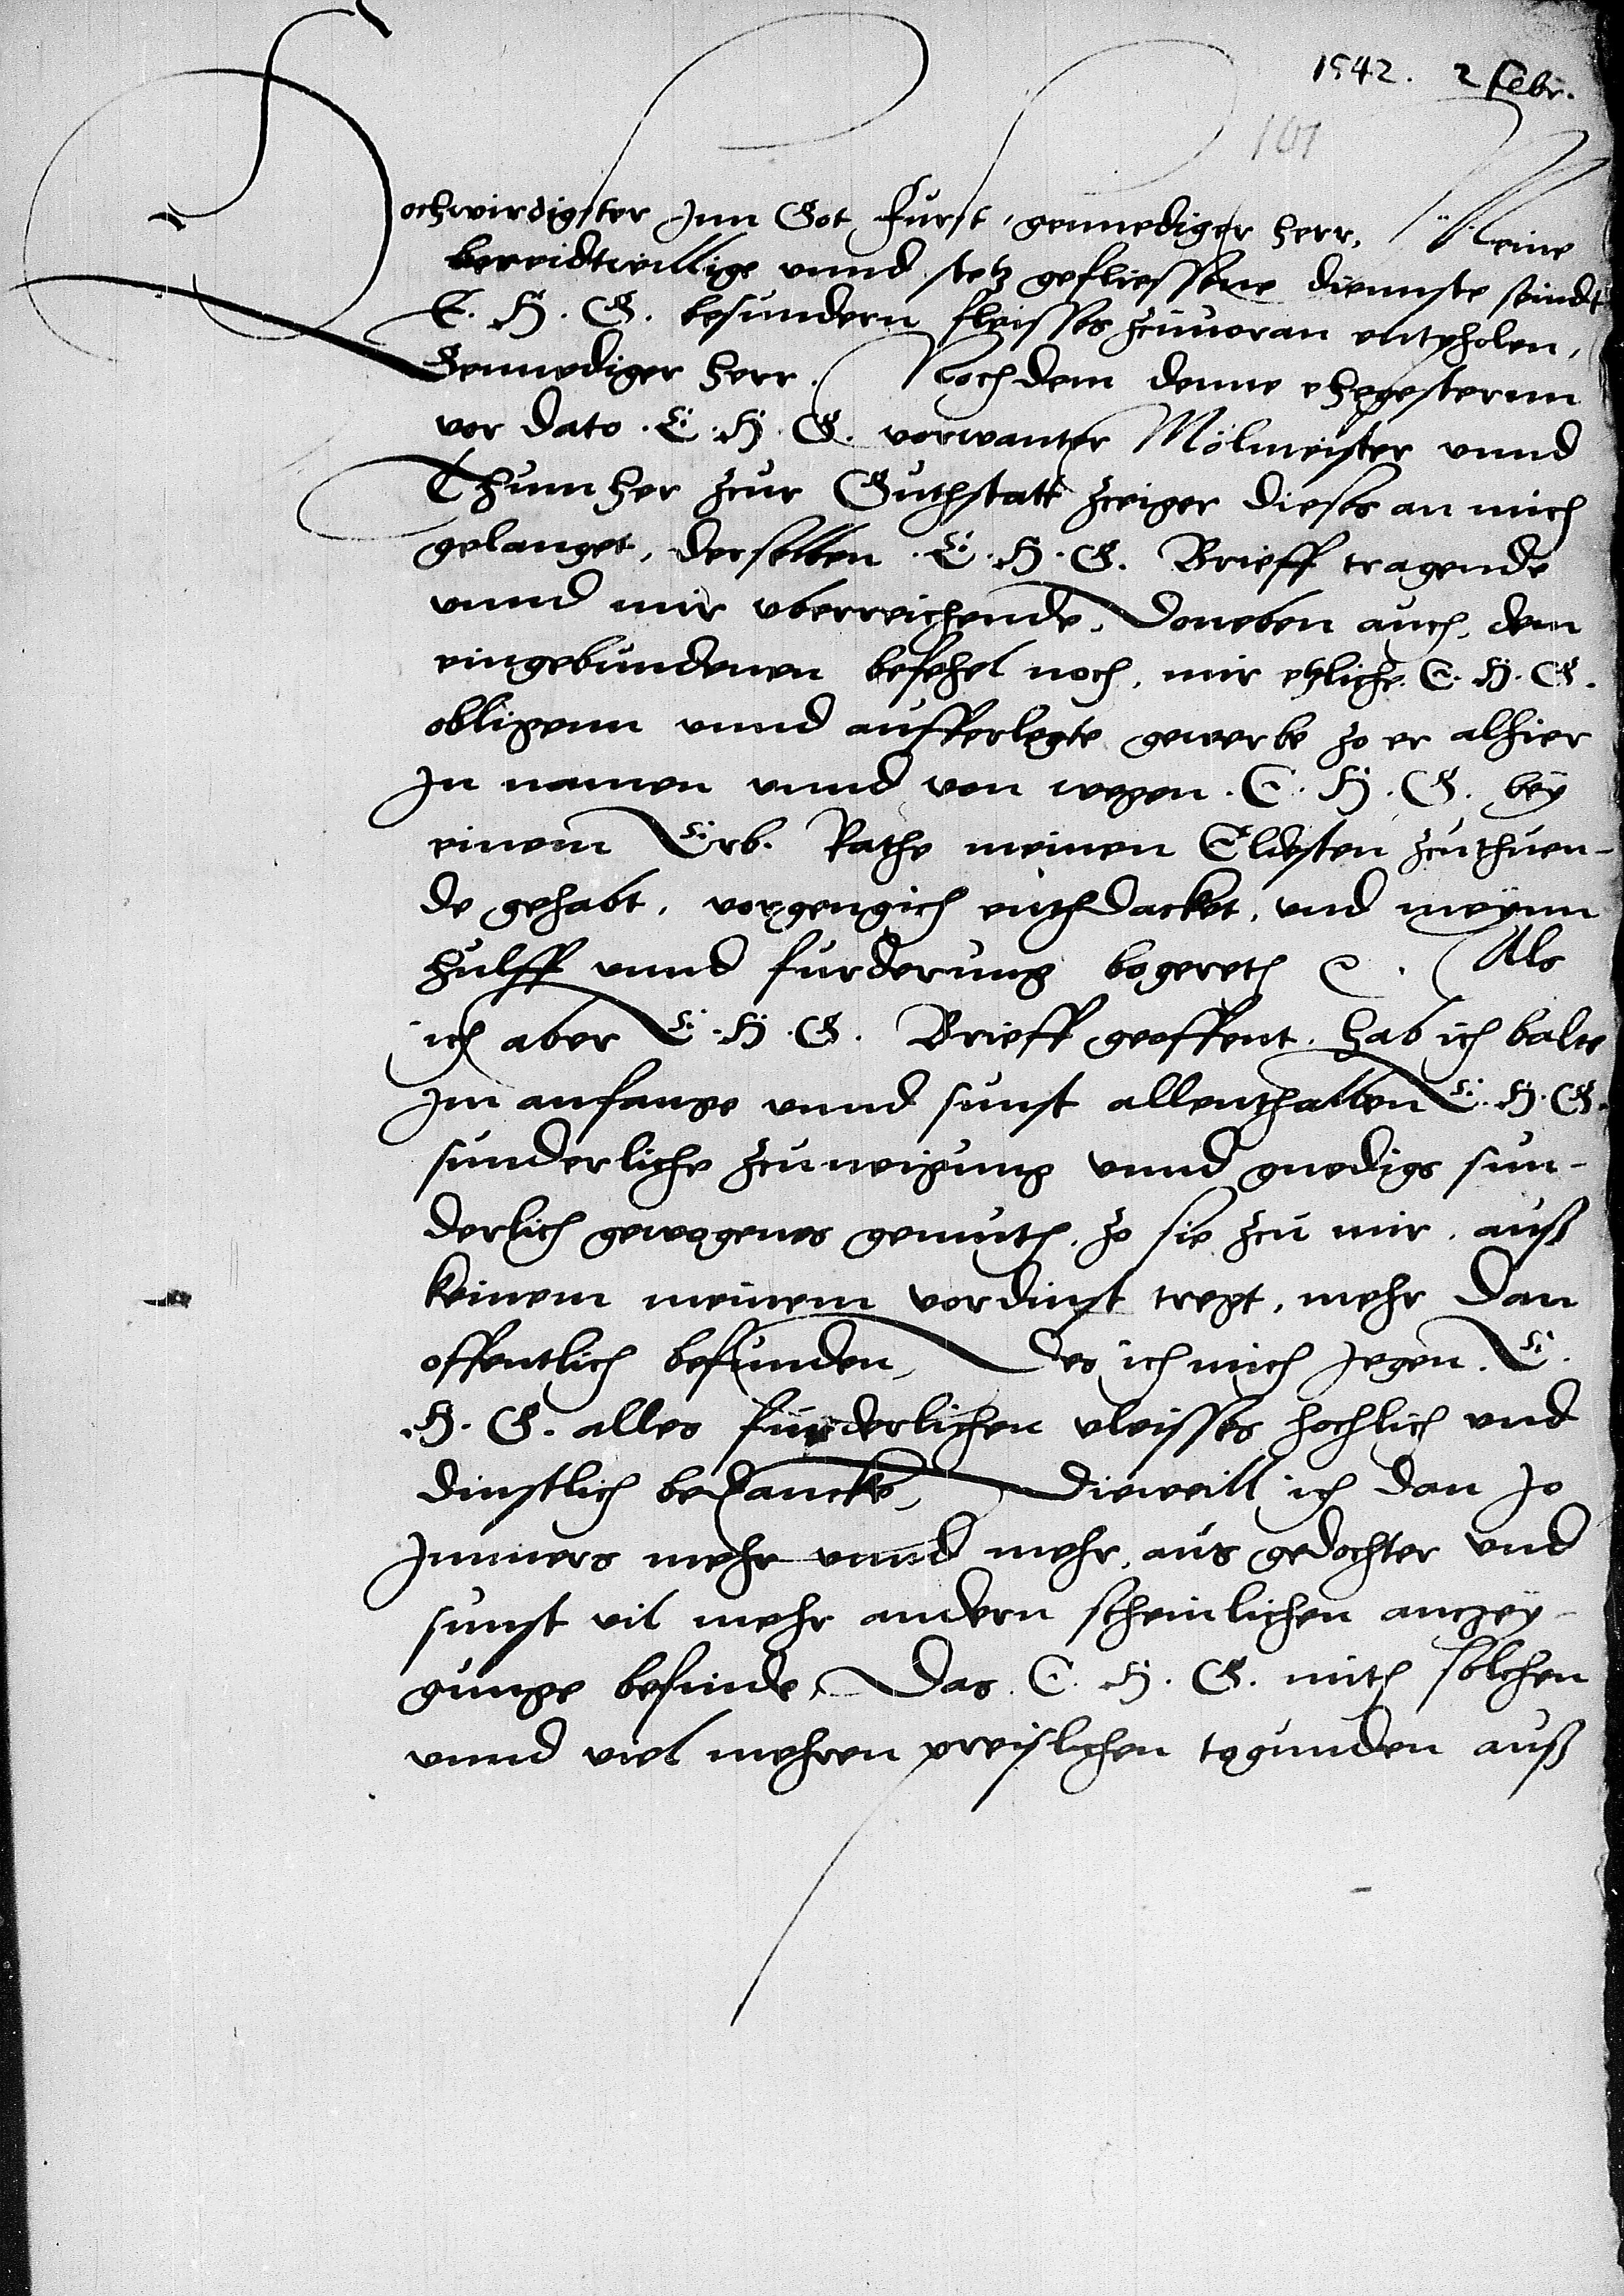 1542. 2 febr.
101
Hochwirdigster Jnn Got furst, gennediger herr, Meine
bereidtwillige vnnd stetz gefliessene diennste seindt
E. H. G. besundern fleisses zcuuoran entpholen,
Gennediger herr. Noch dem denne ehegesternn
vor dato .E. H. G. vorwanter Mölmeister vnnd
Thumher zcur Guthstatt zceiger dieses an mich
gelanget, derselben .E. H. G. Brieff tragende
vnnd mir vberreichende, Doneben auch, dem
eingebundenen befehel noch, mir etzliche E. H. G.
obligenn vnnd aufferlegte gewerbe zo er alhier
Jn namen vnnd von wegen .E. H. G. bey
einem Erb. Rathe meinen Eldesten zcuthuen-
de gehabt, vorgengich enthdacket, vnd meynn
hulff vnnd furderung begereth Als
ich aber E. H. G. Brieff geoffent, hab ich balde
Jm anfange vnnd sunst allenthalben E. H. G.
sunderliche zcuneigung vnnd gnedigs sun-
derlich gewogenes gemuth, zo sie zcu mir, auß
keinem meinem vordinst tregt, mehr dan
offentlich befunden, Des ich mich Jegen .E.
H. G. alles furderlichen vleisses hochlich vnd
dinstlich bedancke, Dieweill ich dan Jo
Jmmers mehr vnnd mehr, aus gedochter vnd
sunst vil mehr andern scheinlichen anzey-
gunge befinde, Das E. H. G. mith solchen
vnnd viel mehren preißlichen togunden auß